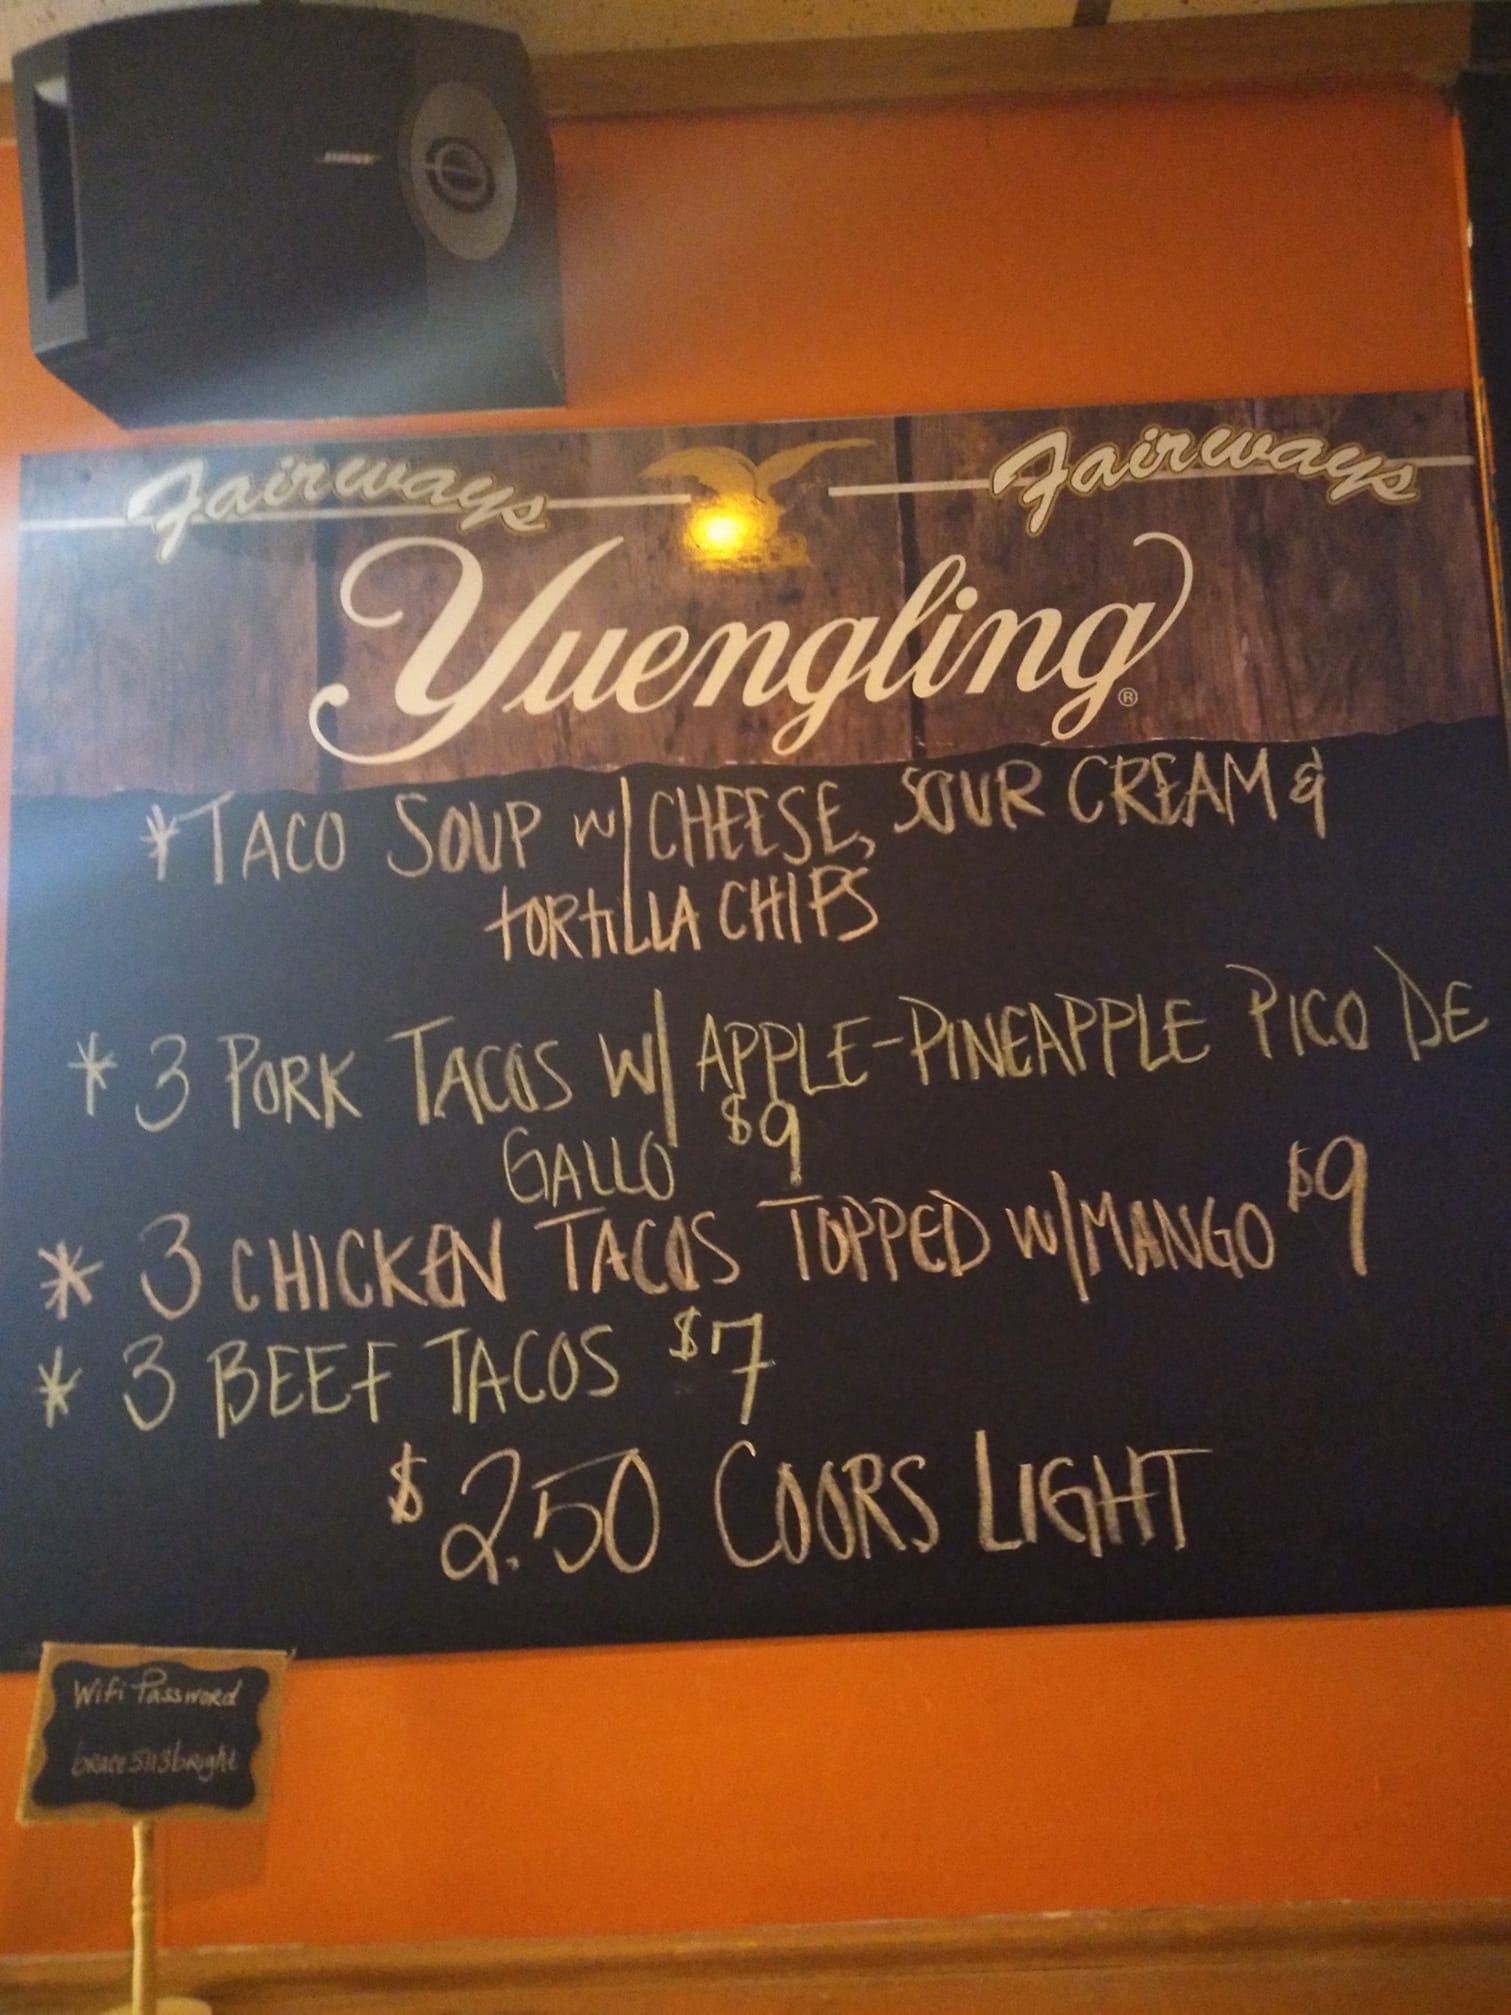 BOSE
Fairways Fairways
Yuengling®
*TACO SOUP w/CHEESE, SOUR CREAM &
TORTILLA CHIPS
* 3 PORK TACOS W/ APPLE-PINEAPPLE PICO DE
GALLO $9
* 3 CHICKEN TACOS TOPPED W/MANGO $9
* 3 BEEF TACOS $7
$2.50 COORS LIGHT
Wifi Password
brace5113bright